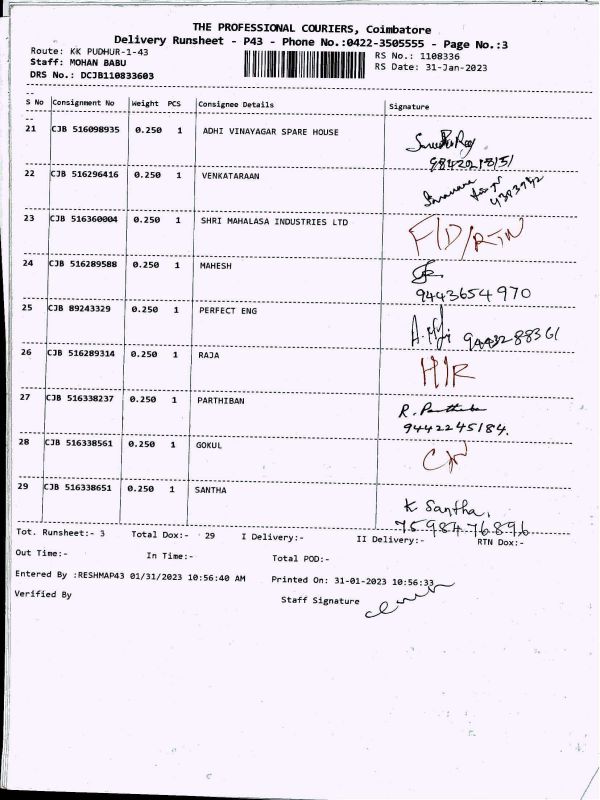 THE PROFESSIONAL COURIERS, Coimbatore
Delivery Runsheet - P43 - Phone No.:0422-3505555 - Page No.:3
Route: KK PUDHUR-1-43
RS No.: 1108336
Staff: MOHAN BABU
RS Date: 31-Jan-2023
DRS No.: DCJB110833603
S No Consignment No Weight PCS Consignee Details Signature
21 CJB 516098935 0.250 1 ADHI VINAYAGAR SPARE HOUSE
22 CJB 516296416 0.250 1 VENKATARAAN
23 CJB 516360004 0.250 1 SHRI MAHALASA INDUSTRIES LTD F/D/RTN
24 CJB 516289588 0.250 1 MAHESH
9443654970
25 CJB 89243329 0.250 1 PERFECT ENG
26 CJB 516289314 0.250 1 RAJA
27 CJB 516338237 0.250 1 PARTHIBAN R. Parthiba
9442245184.
28 CJB 516338561 0.250 1 GOKUL
29 CJB 516338651 0.250 1 SANTHA K Santha,
7598476896
Tot. Runsheet:- 3 Total Dox:- 29 I Delivery:- II Delivery:- RTN Dox:-
Out Time:- In Time:- Total POD:-
Entered By :RESHMAP43 01/31/2023 10:56:40 AM Printed On: 31-01-2023 10:56:33
Verified By Staff Signature